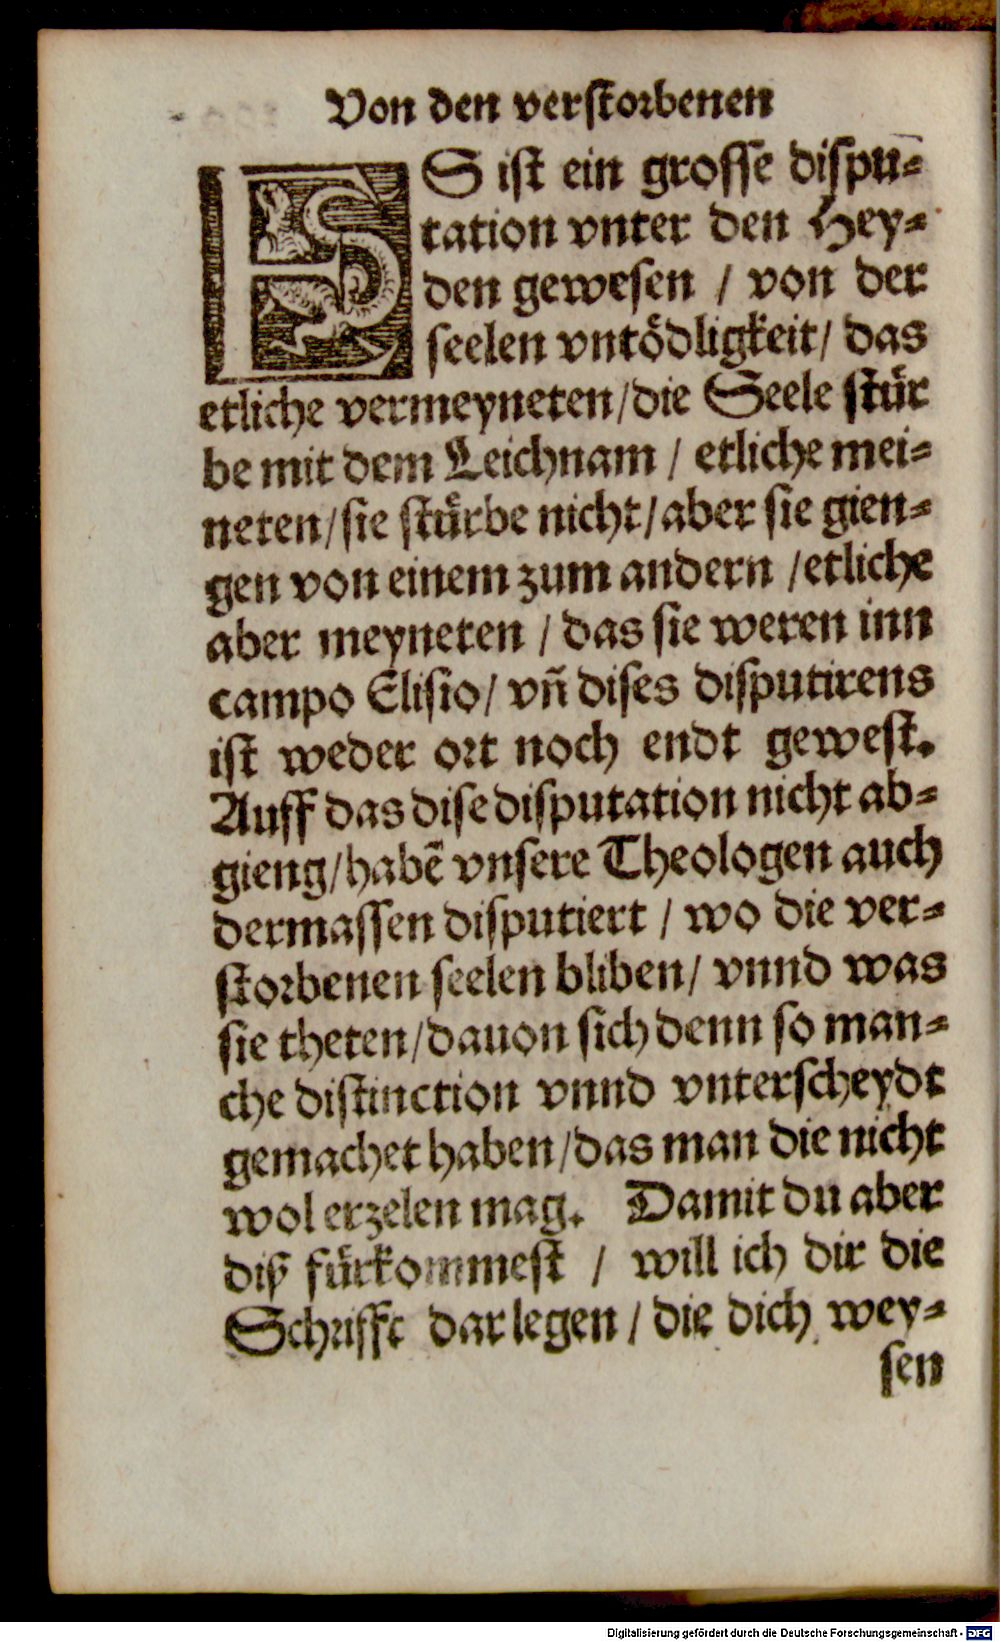 Von den verstorbenen
ES ist ein grosse dispu-
tation vnter den Hey-
den gewesen / von der
seelen vntödligkeit / das
etliche vermeyneten / die Seele stür
be mit dem Leichnam / etliche mei-
neten / sie stürbe nicht / aber sie gien-
gen von einem zum andern / etliche
aber meyneten / das sie weren inn
campo Elisio / vñ dises disputirens
ist weder ort noch endt gewest.
Auff das dise disputation nicht ab-
gieng / habẽ vnsere Theologen auch
dermassen disputiert / wo die ver-
storbenen seelen bliben / vnnd was
sie theten / dauon sich denn so man-
che distinction vnnd vnterscheydt
gemachet haben / das man die nicht
wol erzelen mag. Damit du aber
diß fürkommest / will ich dir die
Schrifft dar legen / die dich wey-
sen
Digitalisierung gefördert durch die Deutsche Forschungsgemeinschaft - DFG